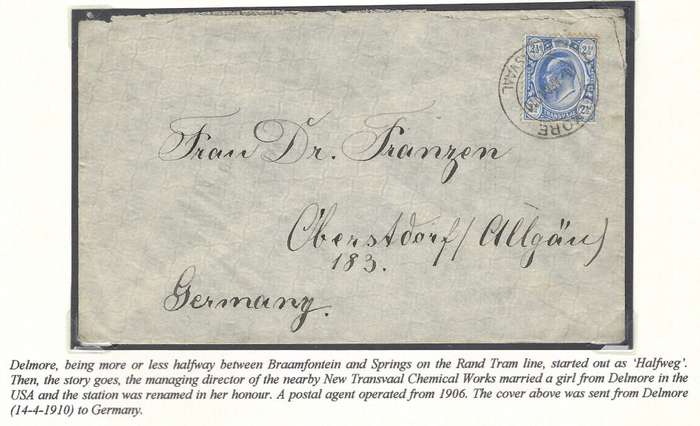 2½d 2½d
TRANSVAAL
Frau Dr. Franzen
Oberstdorf/(Allgäu)
183.
Germany.
Delmore, being more or less halfway between Braamfontein and Springs on the Rand Tram line, started out as ‘Halfweg’.
Then, the story goes, the managing director of the nearby New Transvaal Chemical Works married a girl from Delmore in the
USA and the station was renamed in her honour. A postal agent operated from 1906. The cover above was sent from Delmore
(14-4-1910) to Germany.